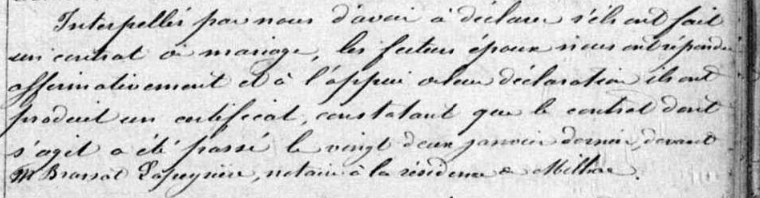 Interpellés par nous d'avoir à déclarer s'ils ont fait
un contrat de mariage, les futurs époux nous ont répondu
affirmativement et à l'appui de leur déclaration ils ont
produit un certificat, constatant que le contrat dont
s'agit a été passé le vingt deux janvier dernier, devant
Me Brassat Lapeyrière, notaire à la résidence de Millau.